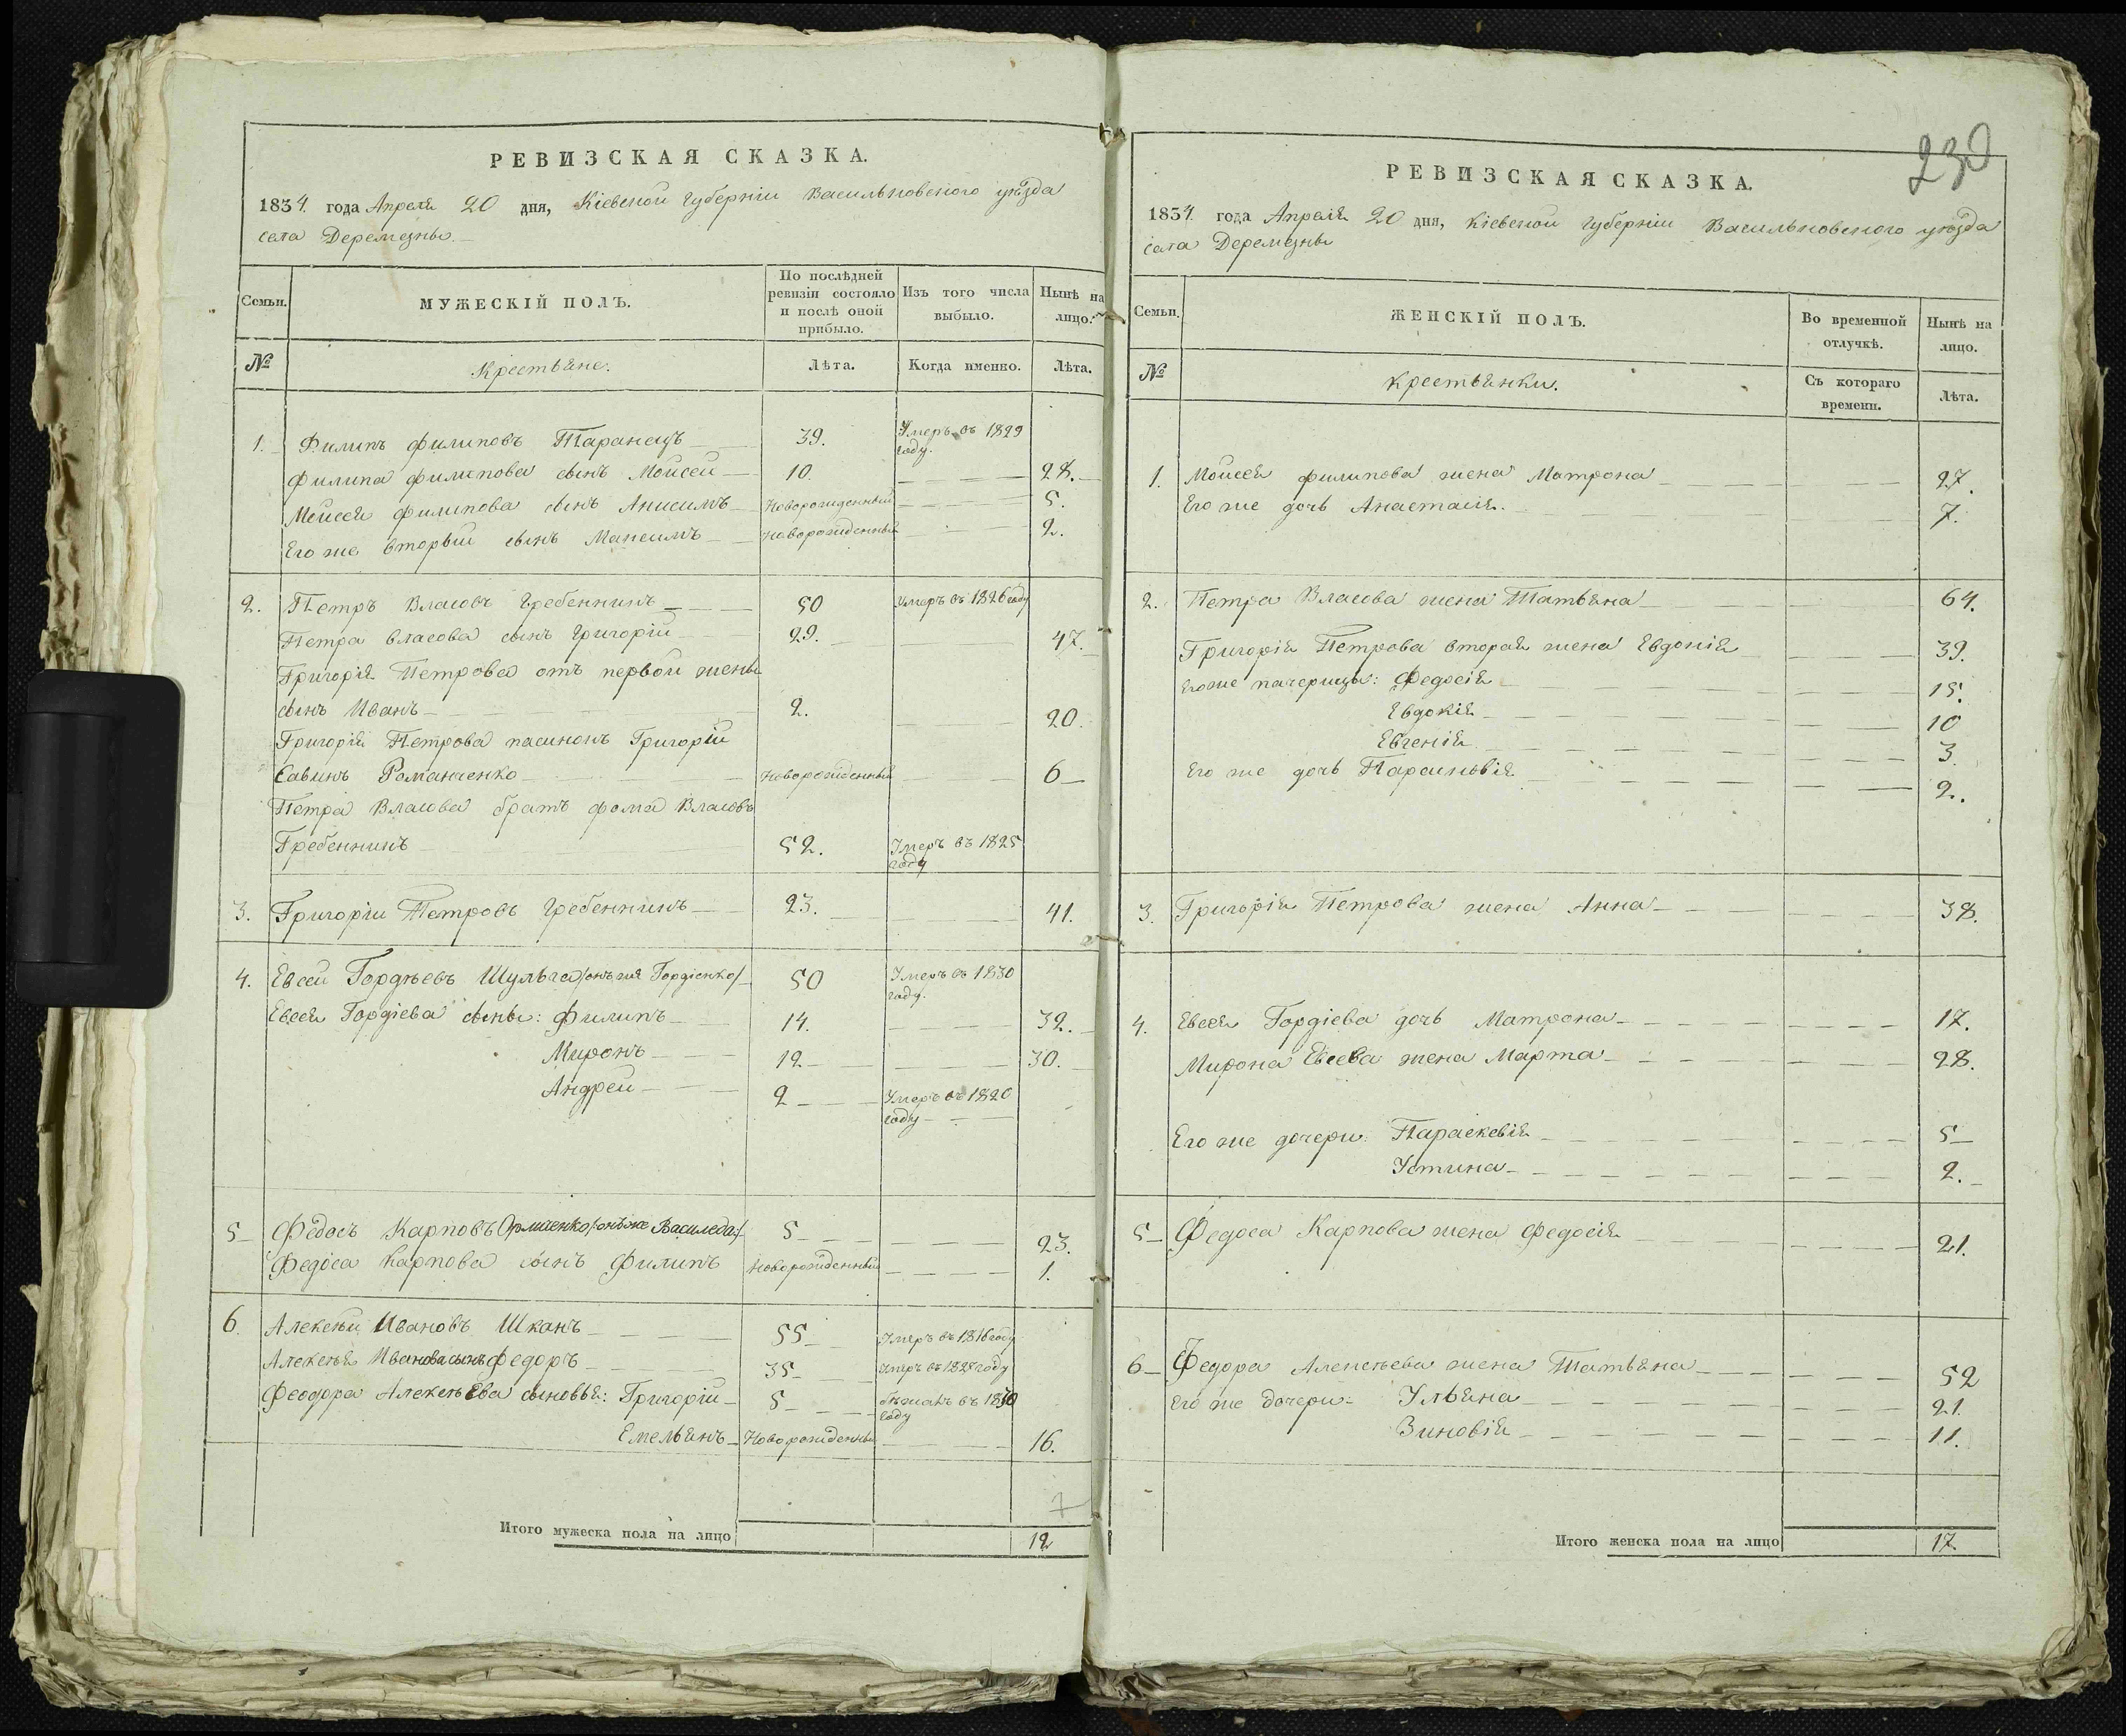 РЕВИЗСКАЯ СКАЗКА.
1834. года Апреля 20 дня, Кіевской Губерніи Васильковского уѣзда
села Деремезны.
Семьи.
МУЖЕСКІЙ ПОЛЪ.
По послѣдней ревизіи состояло и послѣ оной прибыло.
Изъ того числа выбыло.
Нынѣ на лицо.
№
Крестьяне.
Лѣта.
Когда именно.
Лѣта.
1. Филипъ Филиповъ Таранецъ 39. Умеръ въ 1829 году.
Филипа Филипова сынъ Моисей 10. 28.
Моисея Филипова сынъ Анисимъ Новорожденный 5.
Его же вторый сынъ Максимъ Новорожденный 2.
2. Петръ Власовъ Гребенникъ 50 Умеръ въ 1826 году
Петра Власова сынъ Григорій 29. 47.
Григорія Петрова отъ первой жены
сынъ Иванъ 2. 20.
Григорія Петрова пасинокъ Григорій
Савинъ Романченко Новорожденный 6
Петра Власова братъ Фома Власовъ
Гребенникъ 52. Умеръ въ 1825 году
3. Григорій Петровъ Гребенникъ 23. 41.
4. Евсей Гордѣевъ Шульга /онъ же Гордіенко/ 50 Умеръ въ 1830 году.
Евсея Гордіева сыны: Филипъ 14. 32.
Миронъ 12 30.
Андрей 2 Умеръ въ 1820 году
5 Федосъ Карповъ /:онъ же Василега:/ 5 23.
Федоса Карпова сынъ Филипъ Новорожденный 1.
6. Алексѣй Ивановъ Шканъ 55 Умеръ въ 1816 году
Алексѣя Иванова сынъ Федоръ 35 Умеръ въ 1828 году
Феодора Алексѣева сыновья: Григорій 5 бѣжалъ въ 1830 году
Емельянъ Новорожденный 16.
7
Итого мужеска пола на лицо 12
230
РЕВИЗСКАЯ СКАЗКА.
1834. года Апреля 20 дня, Кіевской Губерніи Васильковского уѣзда
села Деремезны
Семьи.
ЖЕНСКІЙ ПОЛЪ.
Во временной отлучкѣ.
Нынѣ на лицо.
№
Крестьянки.
Съ котораго времени.
Лѣта.
1. Моисея Филипова жена Матрона 27.
Его же дочь Анастасія. 7.
2. Петра Власова жена Татьяна 64.
Григорія Петрова вторая жена Евдокія 39.
Его же пачерицы: Федосія 15.
Евдокія 10
Евгенія 3.
Его же дочь Параскевія 2.
3. Григорія Петрова жена Анна 38.
4. Евсея Гордіева дочь Матрона 17.
Мирона Евсева жена Марта 28.
Его же дочери: Параскевія 5
Устина 2.
5 Федоса Карпова жена Федосія 21.
6 Федора Алексѣева жена Татьяна 52
Его же дочери: Ульяна 21.
Зиновія 11.
Итого женска пола на лицо 17.